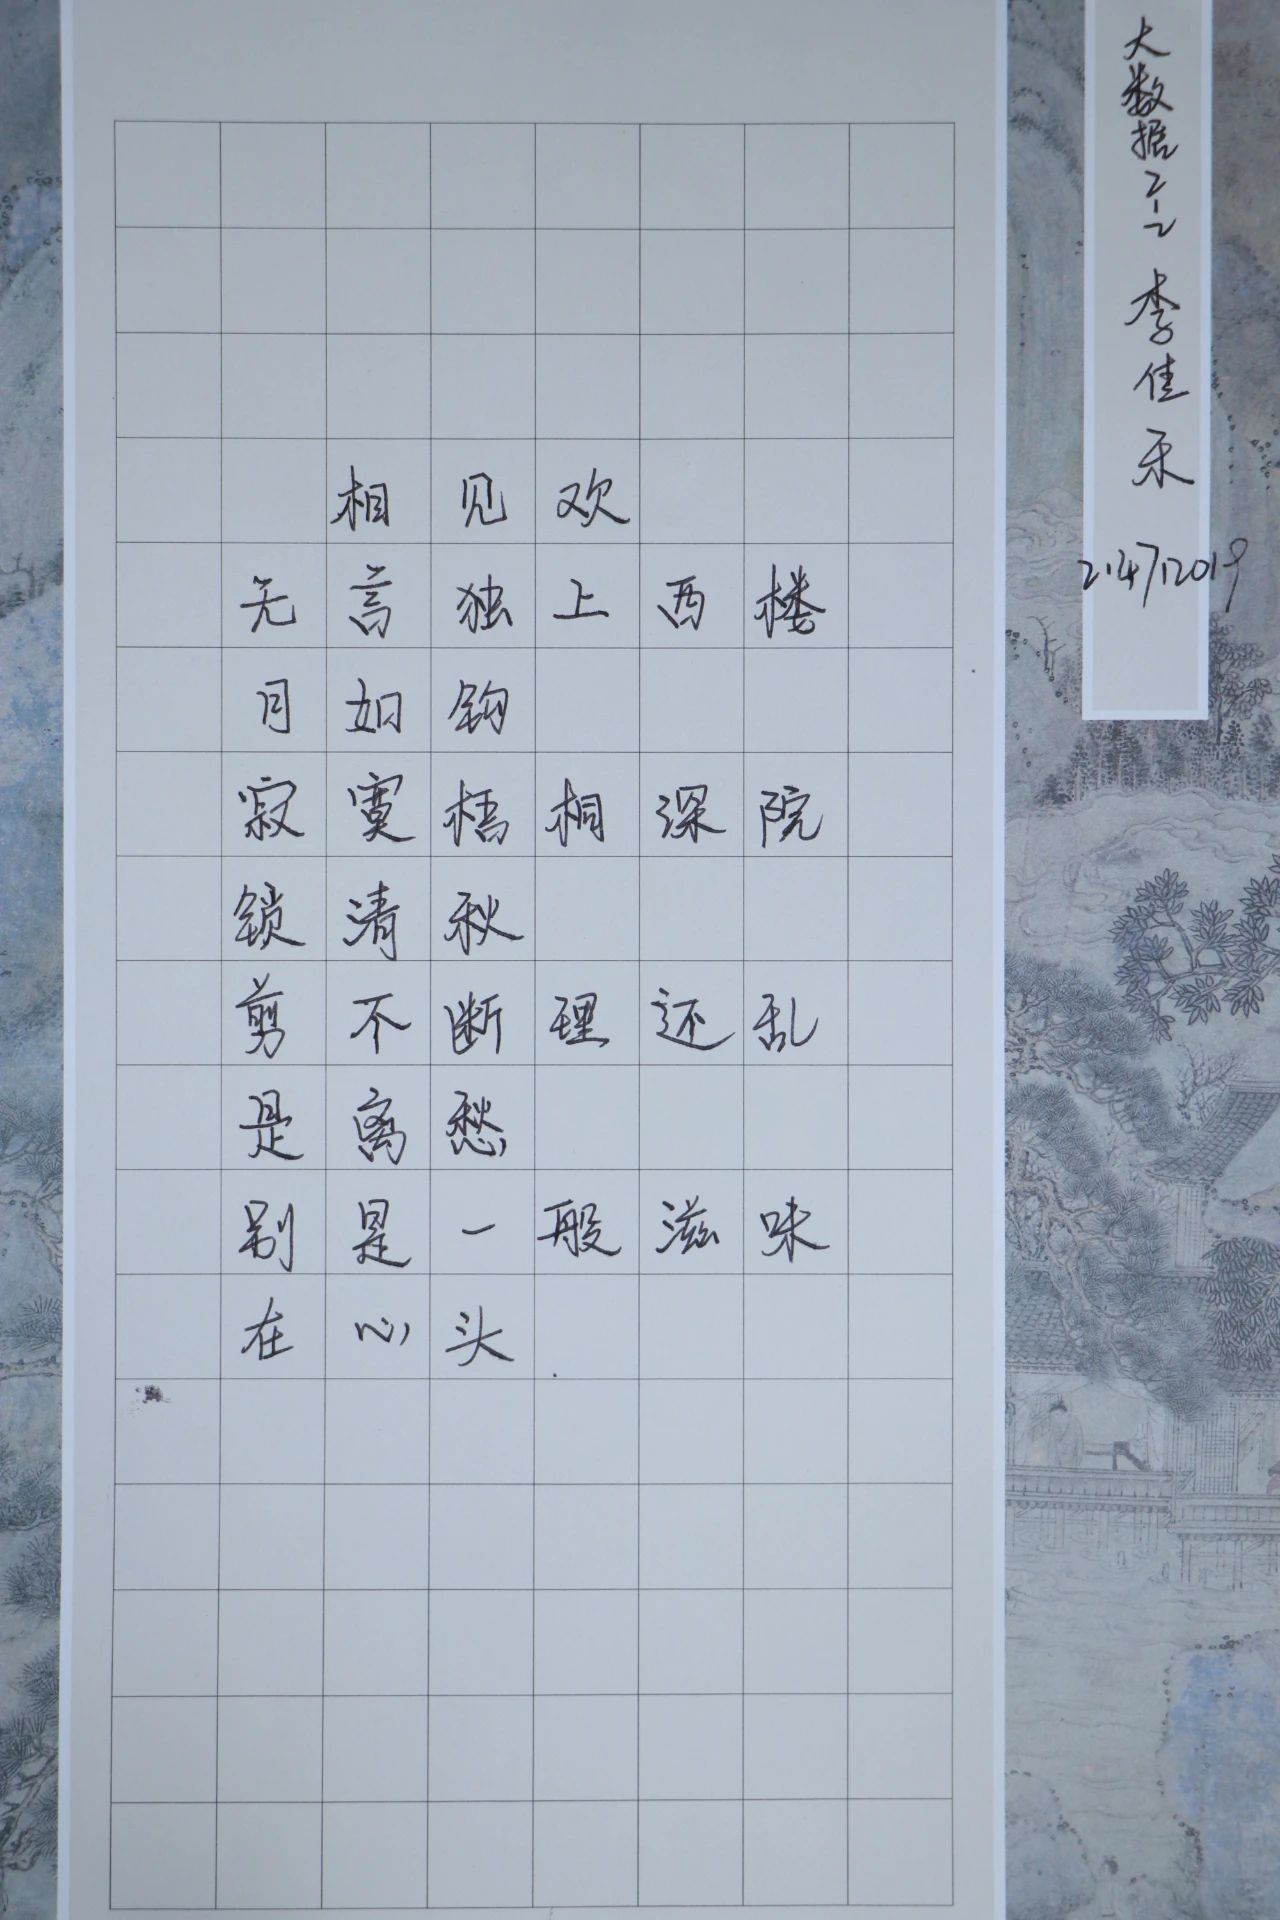 相见欢
无言独上西楼
月如钩
寂寞梧桐深院
锁清秋
剪不断理还乱
是离愁
别是一般滋味
在心头
大数据2-2 李佳禾